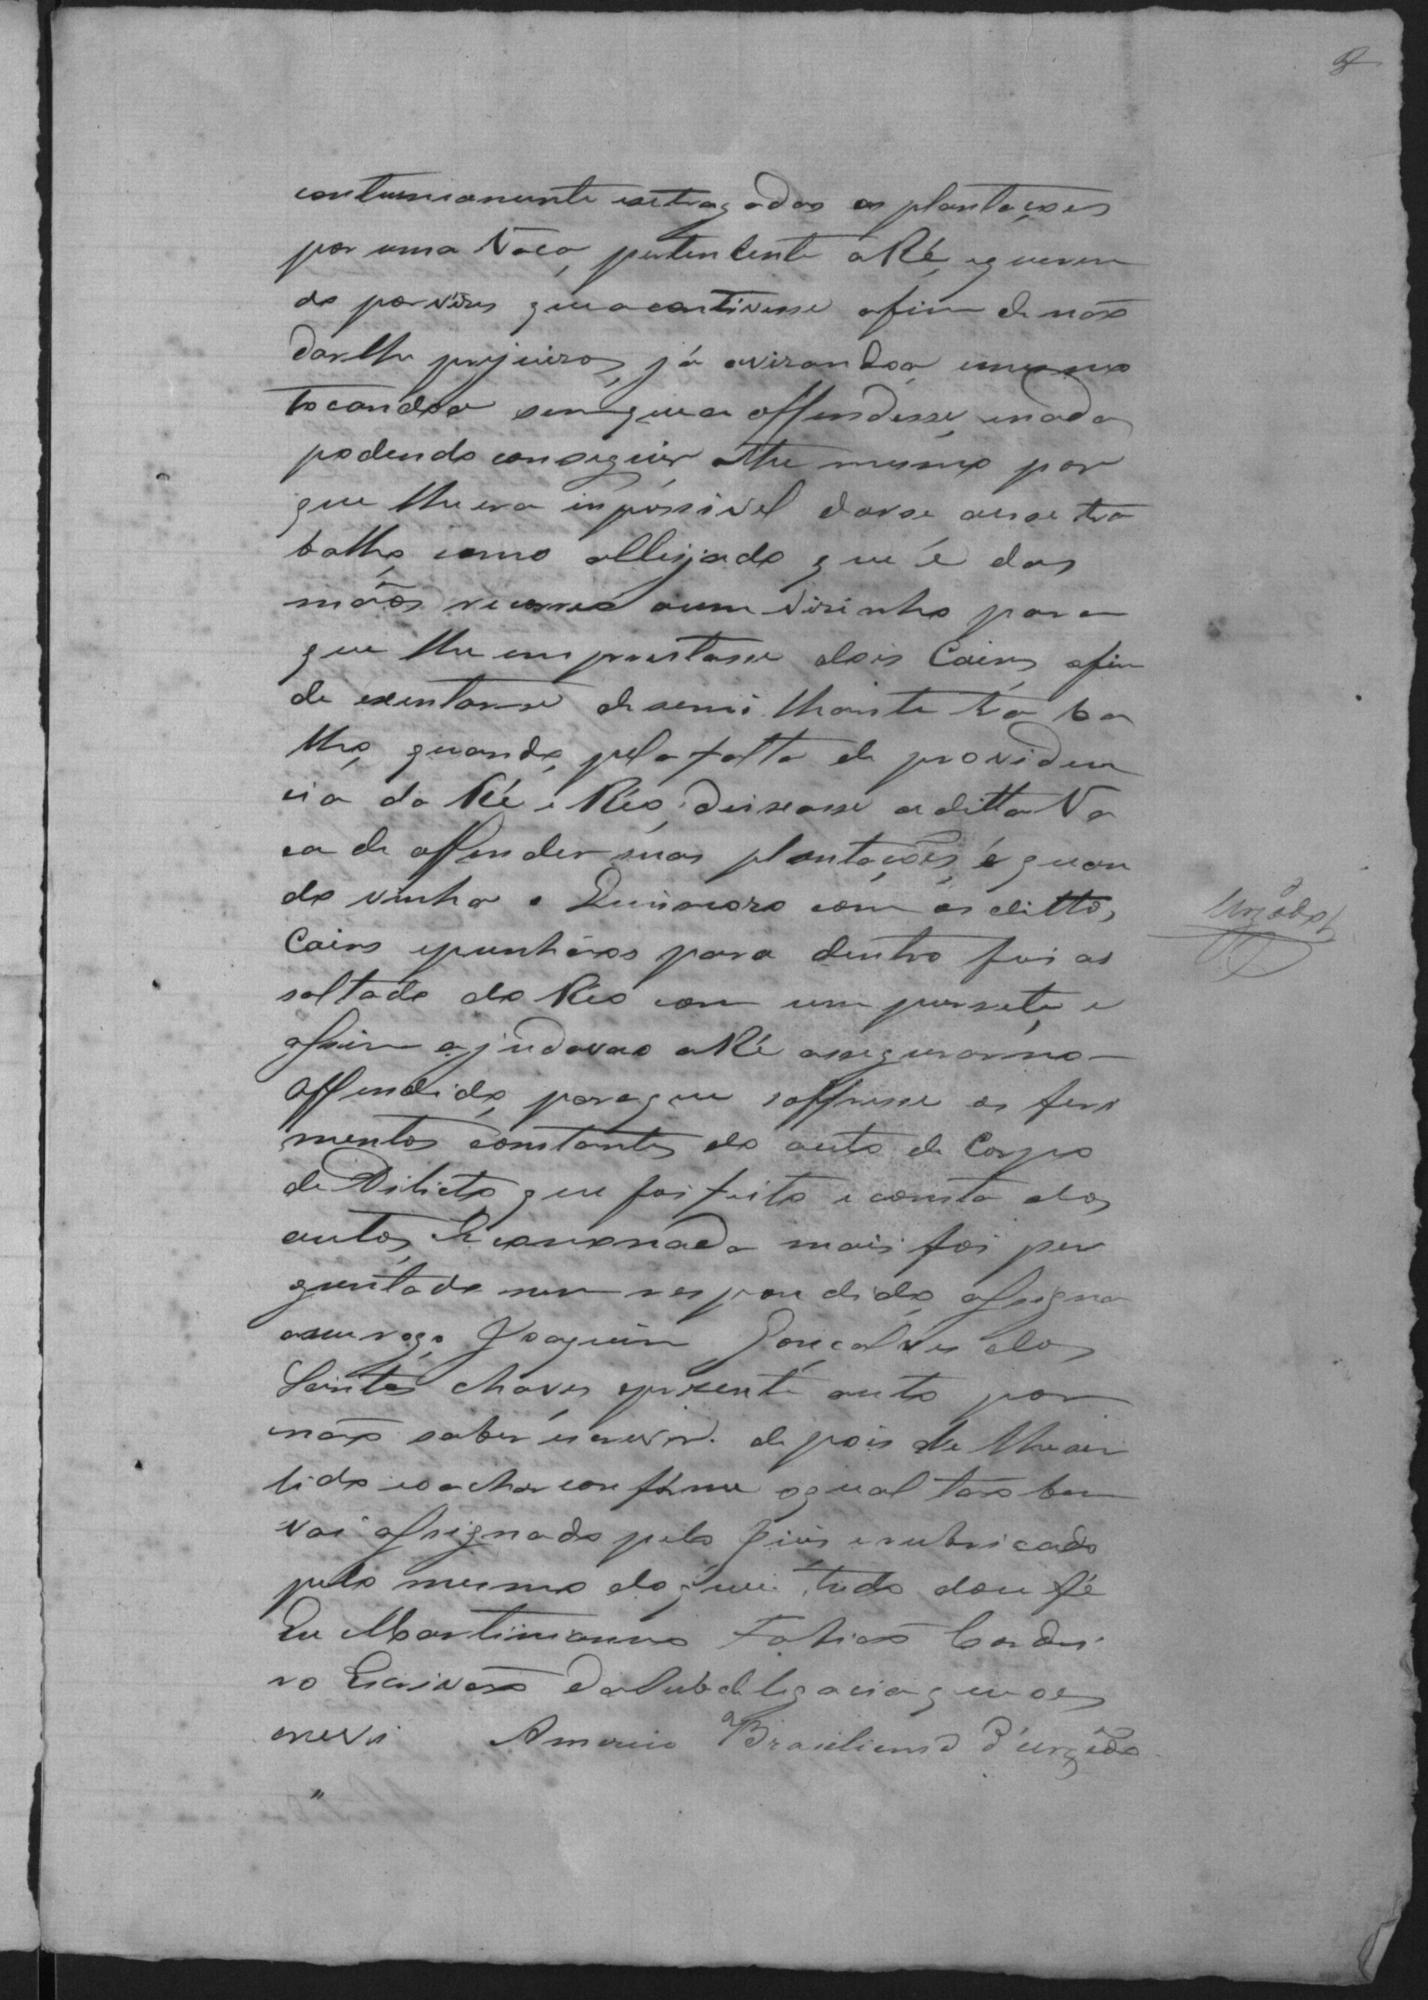 estragados as plantações
por uma Vaca, pertencente a Ré, e queren
do por vezes que a contivesse afim de não
dar lhe prejuizos, já avizandoa, e mesmo
tocandoa sem que a offendesse, e nada
podendo conseguir athe mesmo por
que lhe era impossivel darse a esse tra
balho, como alleijado que é das
mãos recorreo a um Vizinho para
que lhe emprestasse dois Caens, afim
de exentarse de semilhante traba
lho, quando, pela falta de providen
cia da Ré e Réo, deixasse a ditta Va
ca de offender suas plantações, é quan
do vinha o com os dittos
Caens e punha os para dentro foi as
saltado do Réo com um e
assim ajudavao a Ré assegurarmo
offendido, para que soffresse os feri
mentos constantes do auto de Corpo
de Dilicto que foi feito e consta dos
autos. E como nada mais foi per
guntado nem respondido, assigna
a seu rogo Joaquim Gonçalves dos
Santos chaves o prezente auto por
não saber escrever. depois de lhe ser
lido e o achar conforme o qual tão bem
vai assignado pelo Juis e rubricado
pelo mesmo do que tudo dou fé
Eu Martimianno Tobias Cordei
ro Escrivão da Subdelegacia que o es
crevi Americo Brasiliense d'Urzedo
Urzedo